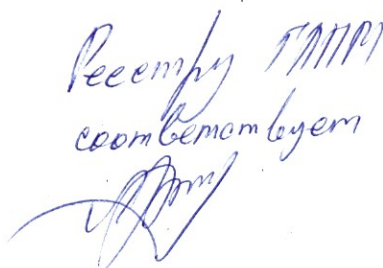 Реестру ГЛПМ
соответствует